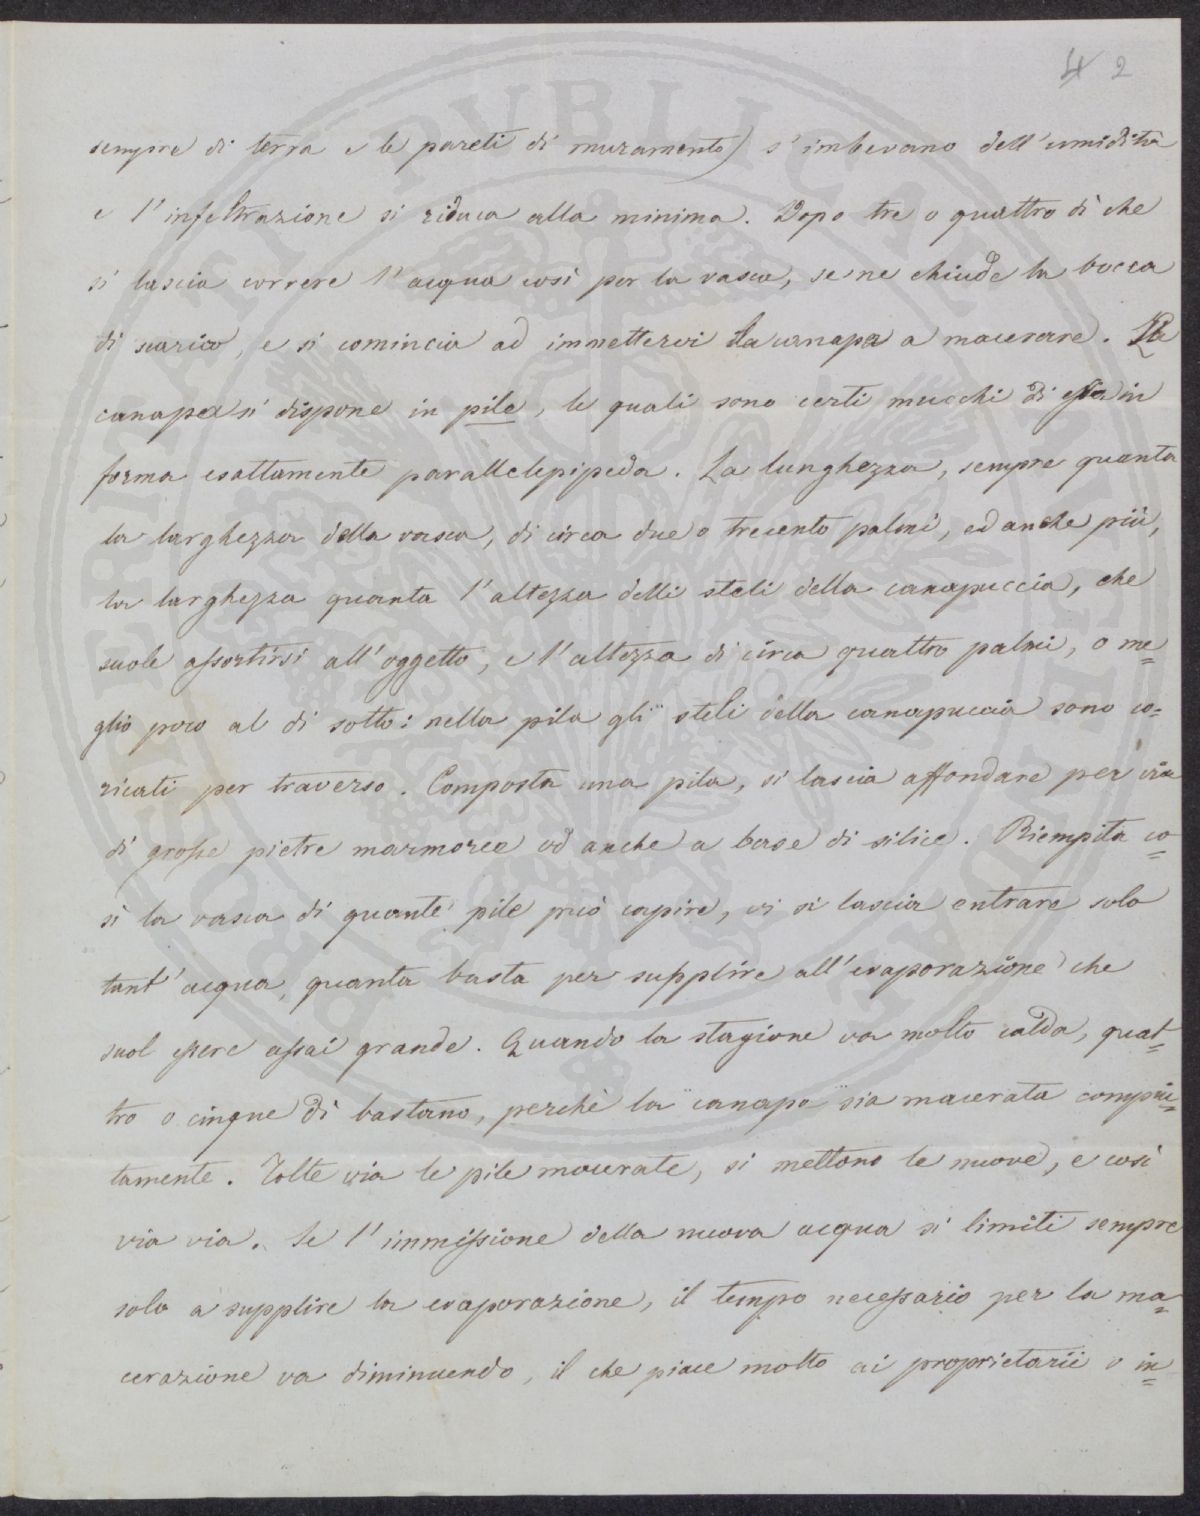 4 2
sempre di terra e le pareti di muramento) s'imbevano dell'umidità
e l'infeltrazione si riduca alla minima. Dopo tre o quattro dì che
si lascia correre l'acqua così per la vasca, se ne chiude la bocca
di scarico, e si comincia ad immettervi la canapa a macerare. La
canapa si dispone in pile, le quali sono certi mucchi di essa in
forma esattamente parallelepipeda. La lunghezza, sempre quanta
la larghezza della vasca, di circa due o trecento palmi, ed anche più,
la larghezza quanta l'altezza delli steli della canapuccia, che
suole assortirsi all'oggetto, e l'altezza di circa quattro palmi, o me=
glio poco al di sotto: nella pila gli steli della canapuccia sono co=
ricati per traverso. Composta una pila, si lascia affondare per via
di grosse pietre marmoree od anche a base di silice. Riempita co=
sì la vasca di quante pile può capire, vi si lascia entrare solo
tant'acqua, quanta basta per supplire all'evaporazione che
suol essere assai grande. Quando la stagione va molto calda, quat=
tro o cinque dì bastano, perchè la canapa sia macerata compiu=
tamente. Tolte via le pile macerate, si mettono le nuove, e così
via via. Se l'immissione della nuova acqua si limiti sempre
solo a supplire la evaporazione, il tempo necessario per la ma=
cerazione va diminuendo, il che piace molto ai proprietarii o in=
PUBLICUM